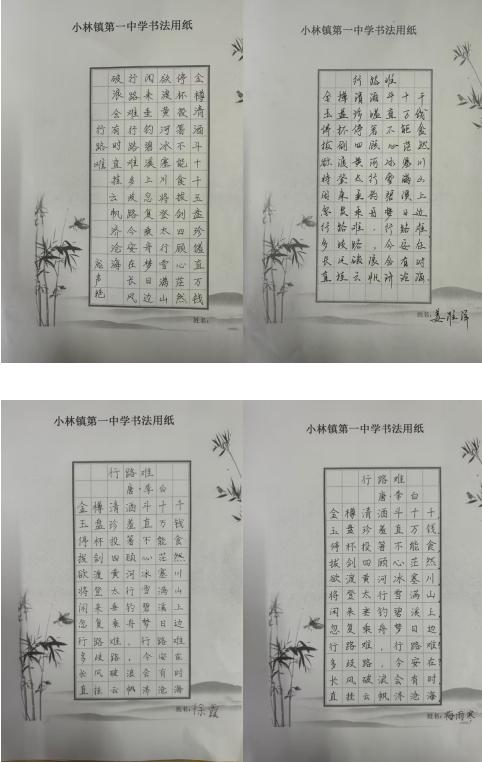 小林镇第一中学书法用纸
金樽清酒斗十千玉盘珍馐直万钱
停杯投箸不能食拔剑四顾心茫然
欲渡黄河冰塞川将登太行雪满山
闲来垂钓碧溪上忽复乘舟梦日边
行路难行路难多歧路今安在长风
破浪会有时直挂云帆济沧海
行路难
姓名：
小林镇第一中学书法用纸
行路难
金樽清酒斗十千
玉盘珍馐直万钱
停杯投箸不能食
拔剑四顾心茫然
欲渡黄河冰塞川
将登太行雪满山
闲来垂钓碧溪上
忽复乘舟梦日边
行路难，行路难
多歧路，今安在
长风破浪会有时
直挂云帆济沧海
姓名：
小林镇第一中学书法用纸
行路难
唐·李白
金樽清酒斗十千
玉盘珍羞直万钱
停杯投箸不能食
拔剑四顾心茫然
欲渡黄河冰塞川
将登太行雪满山
闲来垂钓碧溪上
忽复乘舟梦日边
行路难，行路难
多歧路，今安在
长风破浪会有时
直挂云帆济沧海
姓名：徐霞
小林镇第一中学书法用纸
行路难
唐·李白
金樽清酒斗十千，
玉盘珍羞直万钱。
停杯投箸不能食，
拔剑四顾心茫然。
欲渡黄河冰塞川，
将登太行雪满山。
闲来垂钓碧溪上，
忽复乘舟梦日边。
行路难，行路难！
多歧路，今安在？
长风破浪会有时，
直挂云帆济沧海。
姓名：梅雨寒